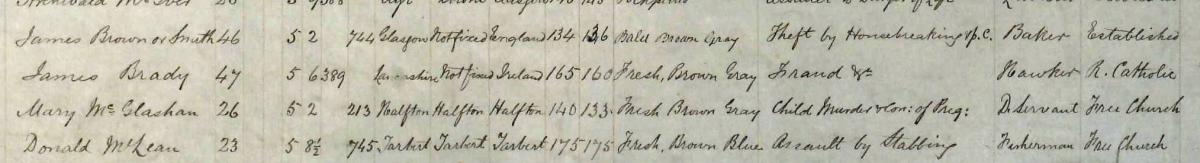 James Brown or Smith 46 5 2 744 Glasgow Not fixed England 134 136 Bald Brown Gray Theft by Housebreaking & p.c. Baker Established
James Brady 47 5 6 389 Lanarkshire Not fixed Ireland 165 160 Fresh, Brown Gray Fraud &c Hawker R. Catholic
Mary McGlashan 26 5 2 213 Halfton Halfton Halfton 140 133 Fresh Brown Gray Child Murder & Con: of Preg: D. Servant Free Church
Donald McLean 23 5 8½ 745 Tarbert Tarbert Tarbert 175 175 Fresh, Brown Blue Assault by Stabbing Fisherman Free Church